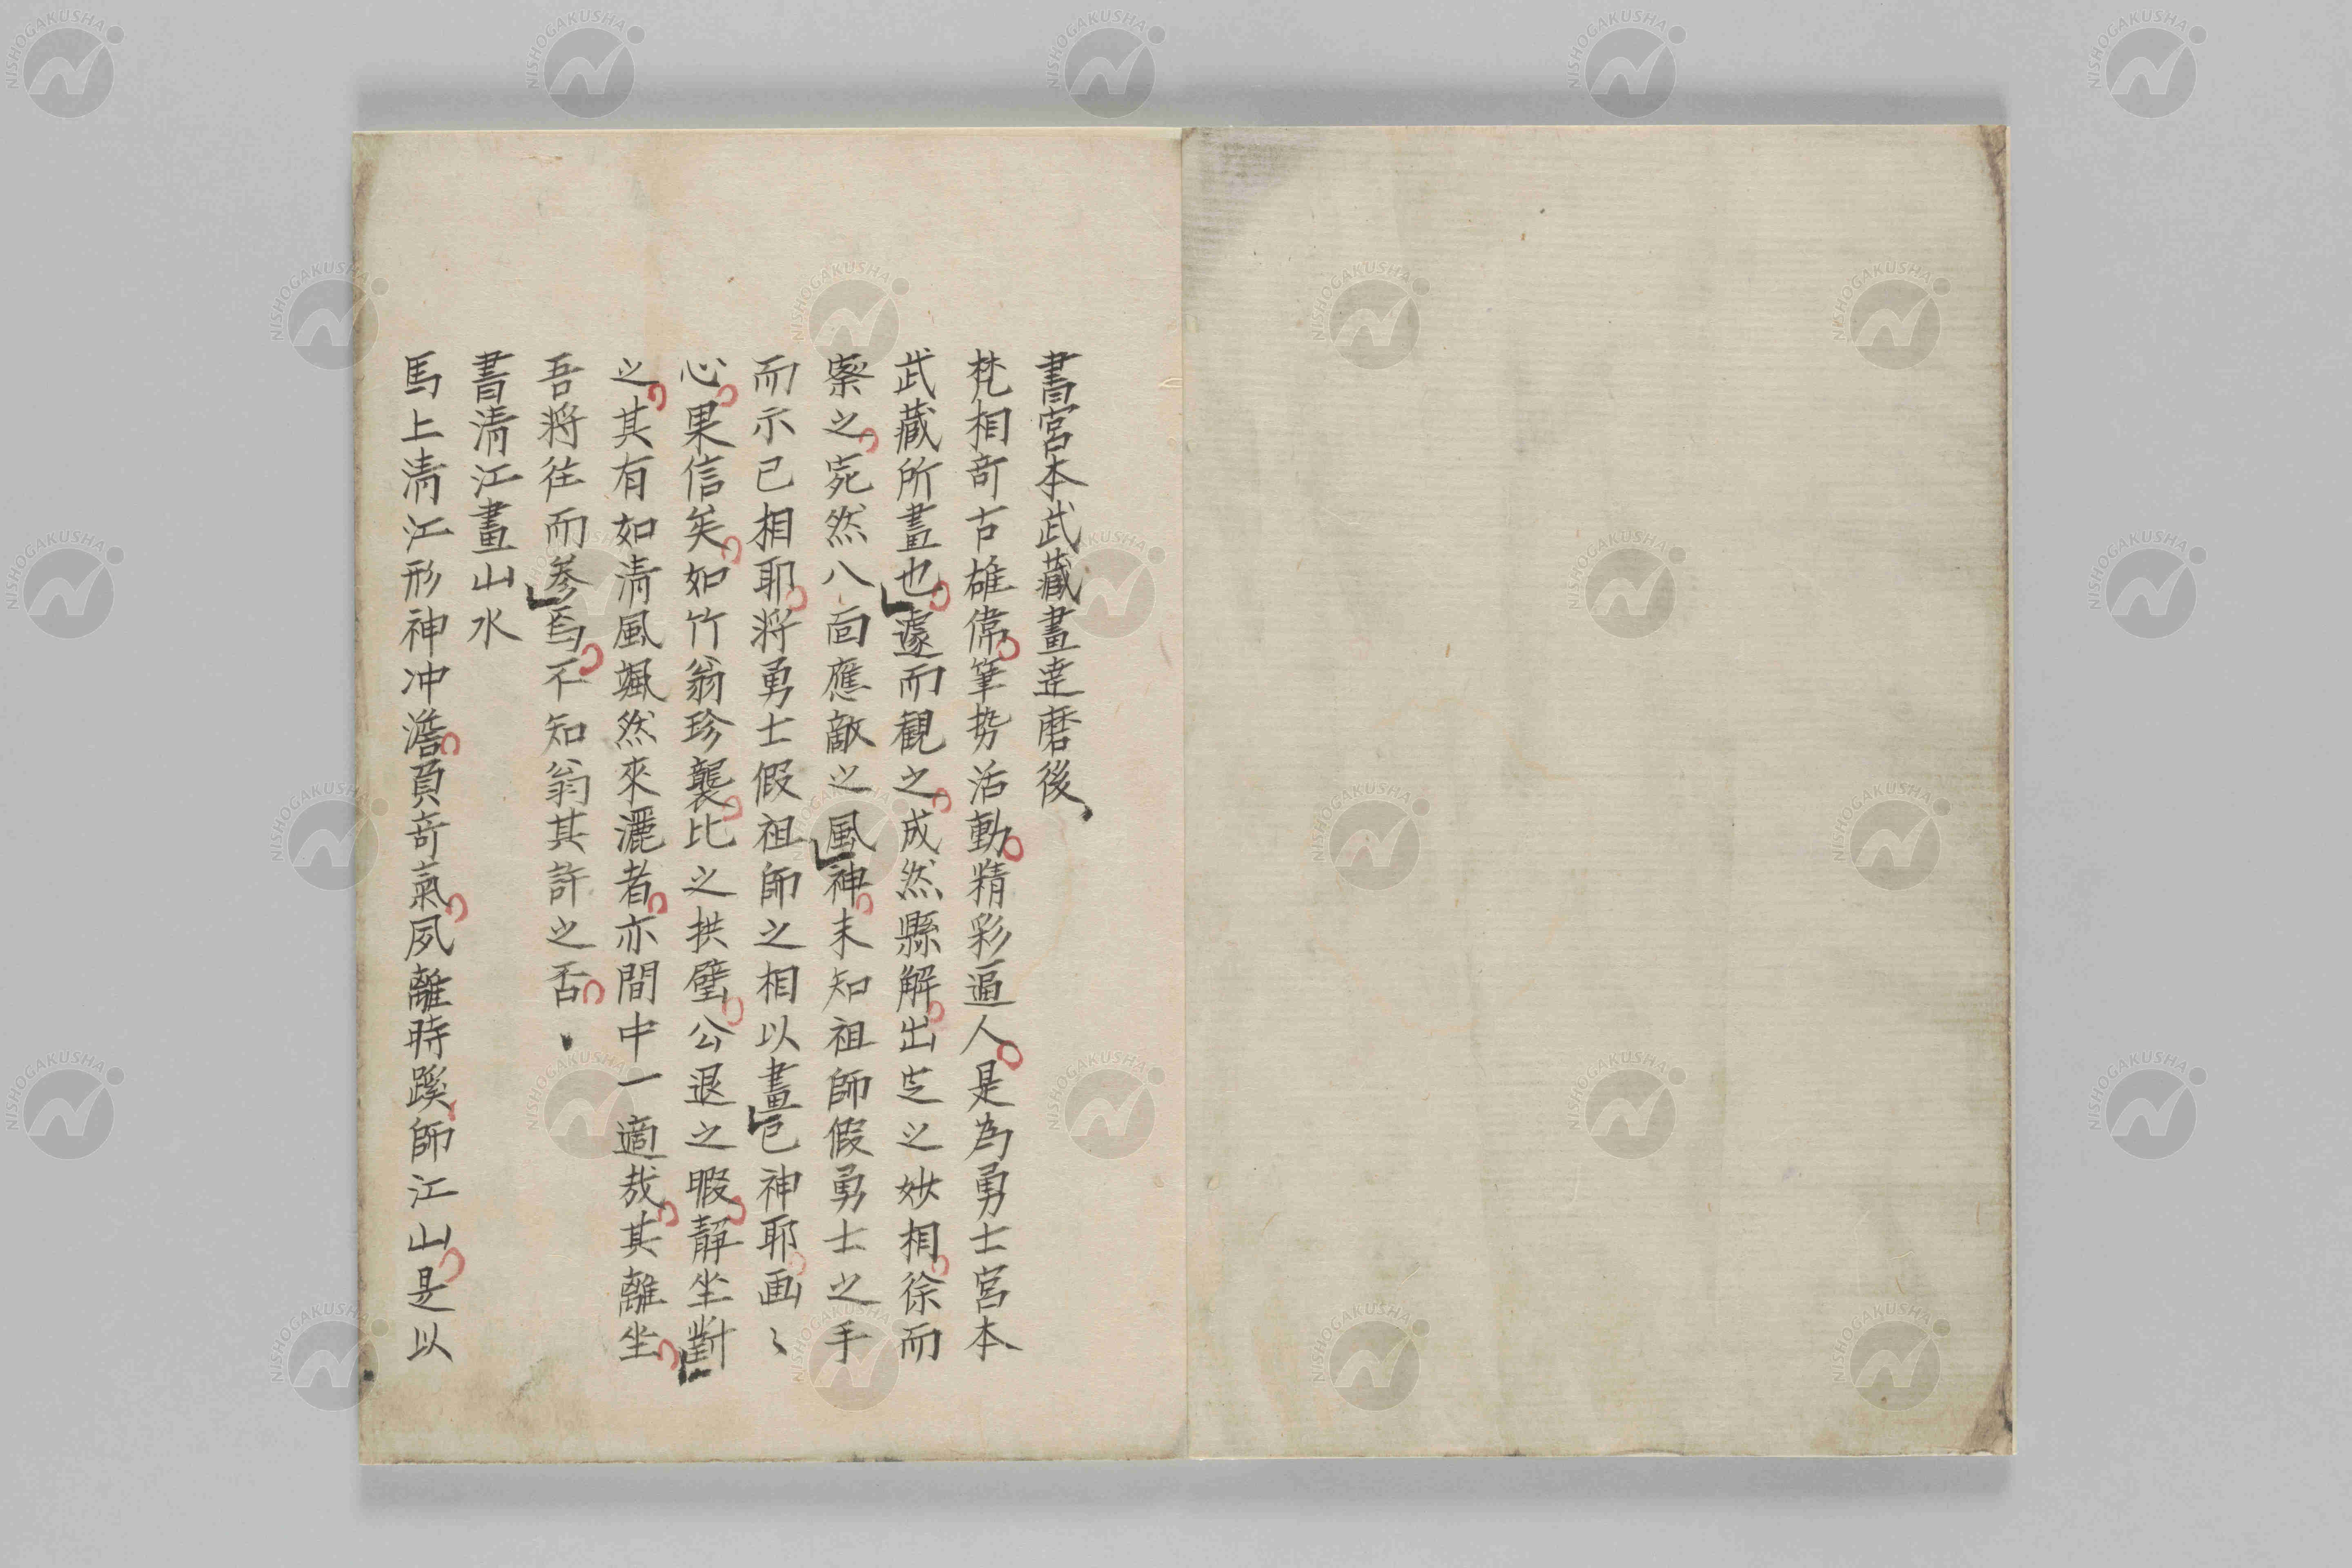 書宮本武藏畫達磨後
梵相奇古雄偉筆势活動精彩逼人是為勇士宮本
武藏所畫也遽而觀之成然縣解出 之妙相徐而
察之宛然八面應敵之風神未知祖師假勇士之手
而示已相耶将勇士假祖師之相以畫己神耶画〻
心果信矣如竹翁珍襲比之拱璧公退之暇靜坐對
之其有如清風颯然來灑者亦間中一適哉其離坐
吾將往而參焉不知翁其許之否
書清江畫山水
馬上清江形神冲澹負奇氣夙離時蹊師江山是以
NISHOGAKUSHA